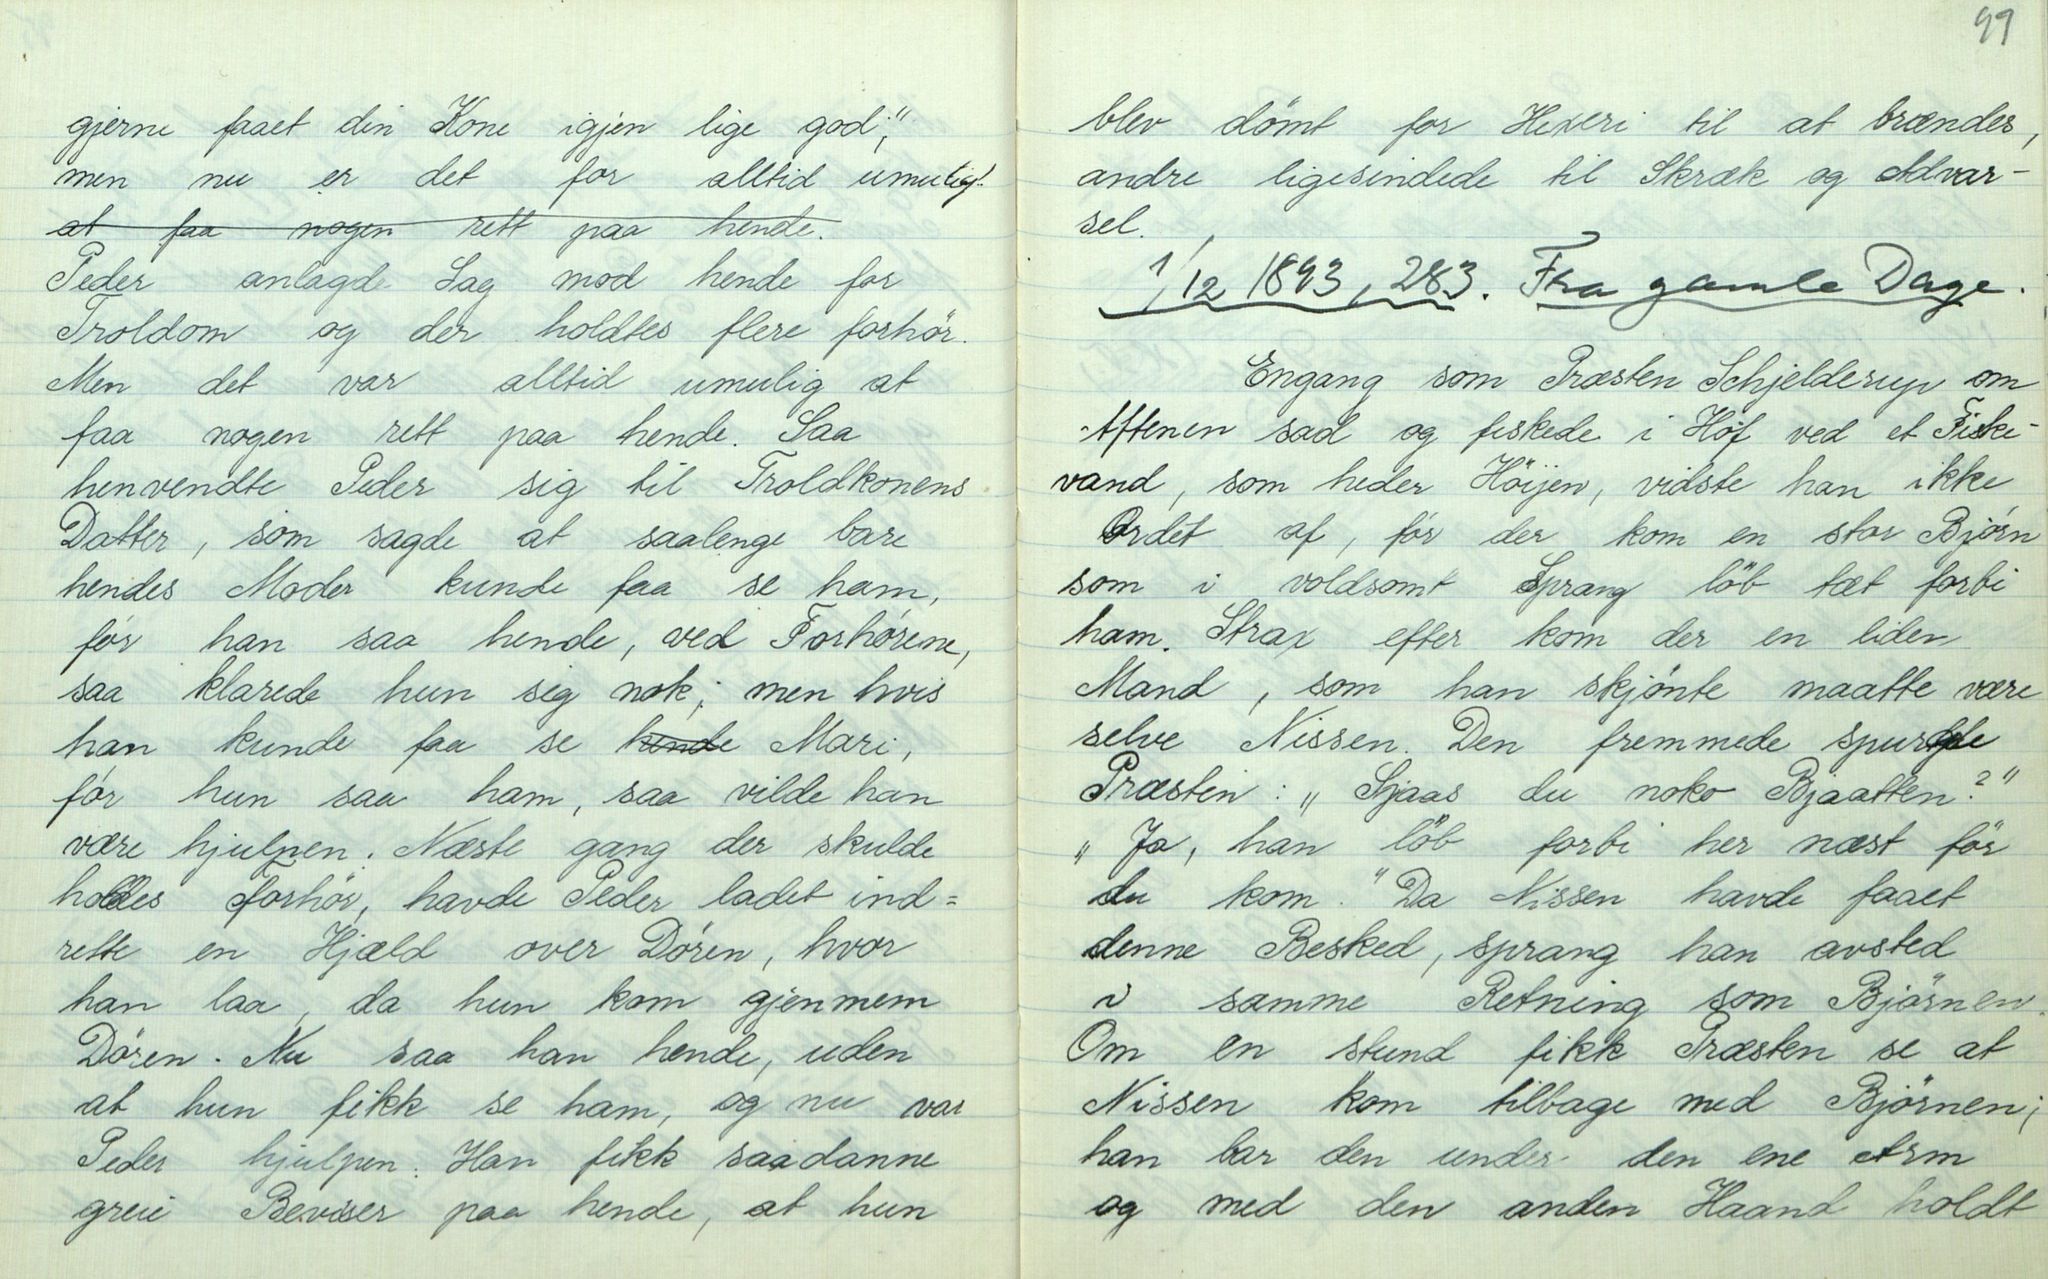 gjerne faaet din Kone igjen lige god;"
men nu er det for alltid umulig.
at faa nogen rett paa hende.
Peder anlagde Sag mod hende for
Troldom og der holdtes flere forhör.
Men det var alltid umulig at
faa nogen rett paa hende. Saa
henvendte Peder sig til Troldkonens
Datter, som sagde at saalenge bare
hendes Moder kunde faa se ham,
før han saa hende, ved Forhørene,
saa klarede hun sig nok; men hvis
han kunde faa se hende Mari,
før hun saa ham, saa vilde han
være hjulpen. Næste gang der skulde
holdes Forhör, havde Peder ladet ind=
rette en Hjæld over Døren, hvor
han laa, da hun kom gjennem
Døren. Nu saa han hende, uden
at hun fikk se ham, og nu var
Peder hjulpen. Han fikk saadanne
greie Beviser paa hende, at hun
99
blev dömt for Hexeri til at brændes,
andre ligesindede til Skræk og Advar-
sel.
1/12 1893, 283. Fra gamle Dage.
Engang som Præsten Schjelderup om
Aftenen sad og fiskede i Hof ved et Fiske-
vand, som heder Höijen, vidste han ikke
Ordet af, før der kom en stor Bjørn
som i voldsomt Sprang löb tæt forbi
ham. Strax efter kom der en liden
Mand, som han skjønte maatte være
selve Nissen. Den fremmede spurgde
Præsten: „Sjaas du noko Bjaatten?"
„Ja, han löb forbi her næst før
du kom." Da Nissen havde faaet
denne Besked, sprang han avsted
i samme Retning som Björnen.
Om en stund fikk Præsten se at
Nissen kom tilbage med Björnen;
han bar den under den ene Arm
og med den anden Haand holdt